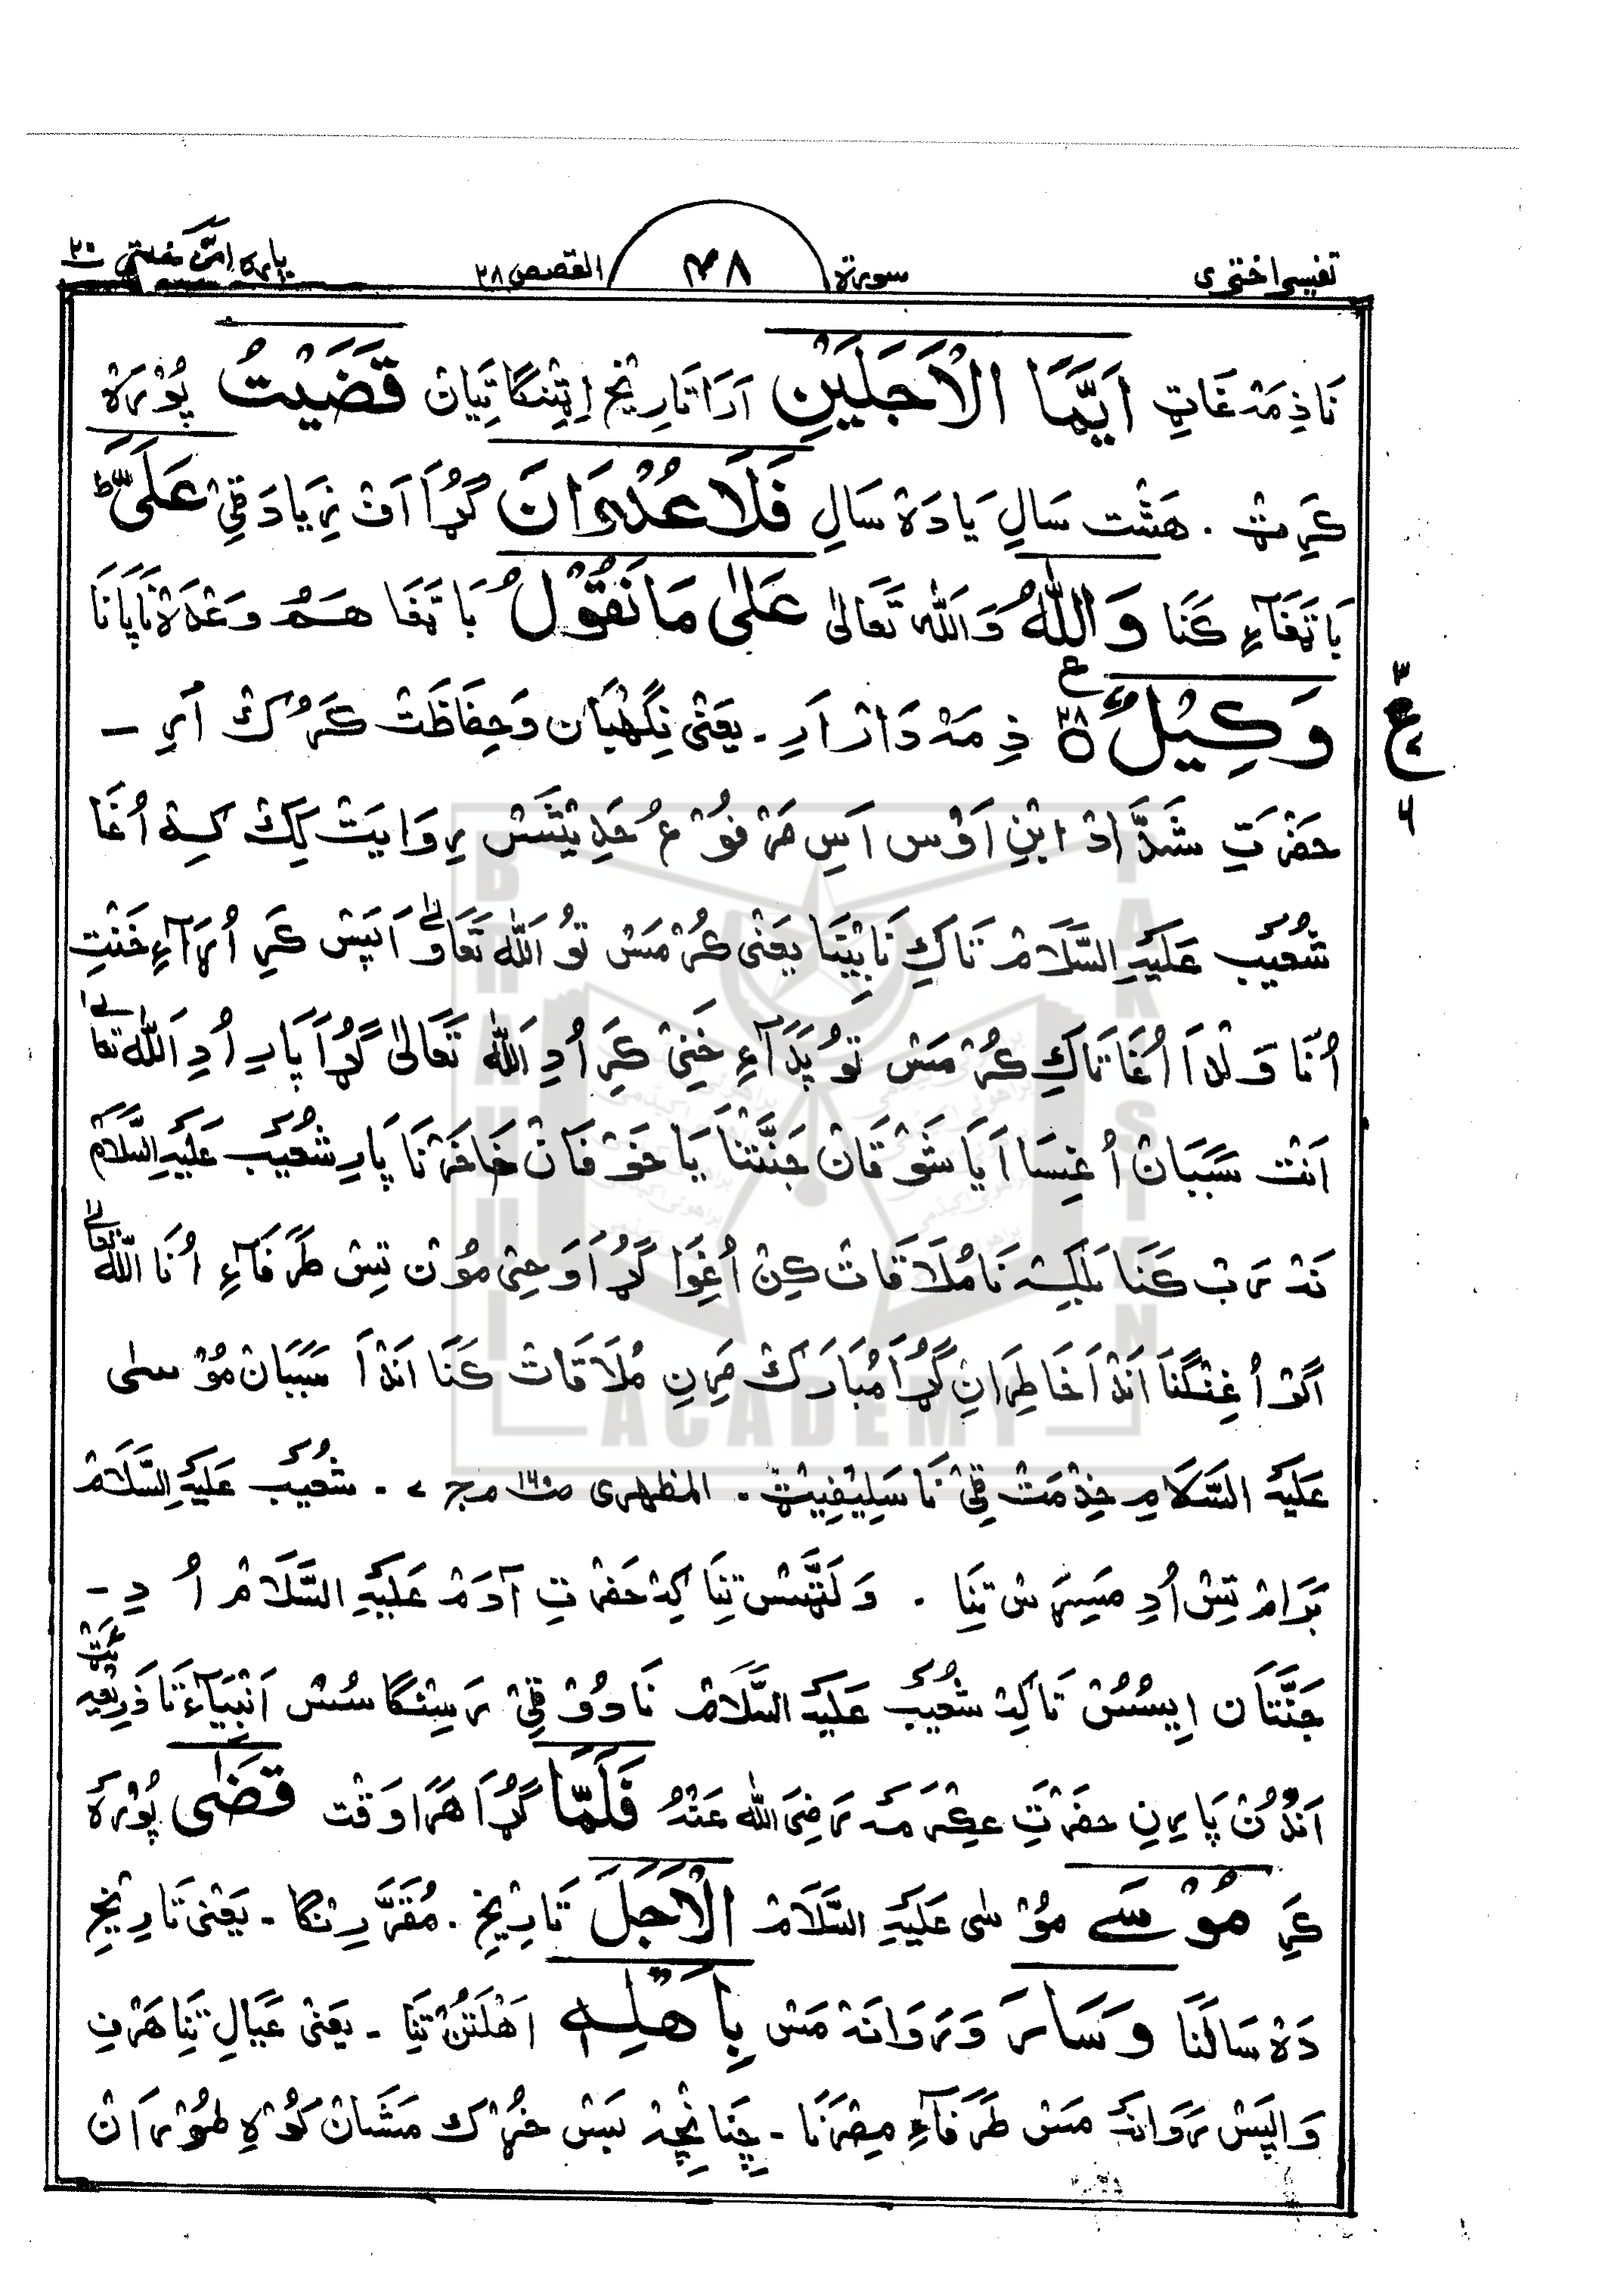 تفسیر اختری سورة ۳۸ القصص ۲۸ پاره امن خلق ۲۰
نَا ذِمَہ غَاتِ اَیَّمَا الْاَجَلَیْنِ اَرَا تَارِیْخ اِتِنْگَا تِیَانْ قَضَیْتُ پُوْرَہْ
کَرِٹْ ۔ هَشْت سَالِ یَا دَہ سَالِ فَلَا عُدْوَانَ گُڑَا اَفْ زِیَادَقِیْ عَلَیَّ ط
بَا تَغَآءِ کَنَا وَاللّٰهُ وَاَللّٰه تَعَالٰی عَلٰی مَا نَقُوْلُ بَا تَغَا هَمُ وَعْدَہْ نَا پَانَا
وَکِیْلٌ ۲۸ ع ذِمَہ دَارْ اَرِ ۔ یَعْنٰی نِگَهْبَان وَحِفَاظَتْ کَرُکْ اَرِ –
ع ۳ ۷ ۶
حَضْرَتِ شَدَّادْ اِبْنِ اَوْس اَسِ مَرْفُوْعُ حَدِیْثَسْ رِوَایَتْ کِکْ کِہ اُغَا
شُعَیْب عَلَیْہِ السَّلَامْ تَاکِ نَابِیْنَا یَعْنٰی کُرْ مَسْ تُو اَللّٰه تَعَالٰی وَاپَسْ کَرِ اُڑَآءِ خَنْتِ
اُنَا وَلْدَا اُغَا تَاکِ کُرْ مَسْ تُو پَدَآءِ خَنِیْ کَرِ اُدِ اَللّٰه تَعَالٰی گُڑَا پَارِ اُدِ اَللّٰه تَعَالٰی
اَنْت سَبَبَانْ اُغِسَا اَیَا شَوْقَانْ جَنَّتْنَا یَا خَوْفَانْ خَاخَرْنَا پَارِ شُعَیْب عَلَیْہِ السَّلَامْ
نَہ رَبْ کَنَا بَلْکِہ نَا مُلَاقَاتْ کِنْ اُغِوَا گُڑَا وَحِیْ مُوْن تِسْ طَرَفَآءِ اُنَا اَللّٰه تَعَالٰی
اَگَرْ اُغِنْگْنَا اَنْدَا خَاطِرَانِ گُڑَا مُبَارَکْ مَرِنِ مُلَاقَاتْ کَنَا اَنْدَا سَبَبَانْ مُوْسٰی
عَلَیْہِ السَّلَامِ خِذْمَتْ قِیْ نَا سَلِیْفِیْٹ ۔ المظهری ص۱۶۰ ج ۷ ۔ شُعَیْب عَلَیْہِ السَّلَامْ
بَرَامْ تِسْ اُدِ مَسِڑِسْ تِنَا ۔ وَلَتَّسْ تِنَا کِہ حَضْرَتِ آدَمْ عَلَیْہِ السَّلَامْ اُدِ –
جَنَّتَان اِیسُسُ تَاکِہ شُعَیْب عَلَیْہِ السَّلَامْ نَا دُوْ قِیْ رَسِنْگَا سُسْ اَنْبِیَاءَ نَا ذَرِیْعَہ ئَٹْ
اَنْدُنْ پَارِنِ حَضْرَتِ عِکْرِمَہ رَضِیَ اللّٰه عَنْهُ فَلَمَّا گُڑَا هَرَا وَقْت قَضٰی پُوْرَہ
کَرِ مُوْسَے مُوْسٰی عَلَیْہِ السَّلَامْ الْاَجَلَ تَارِیْخِ ۔ مُقَرَّرِنْگَا ۔ یَعْنٰی تَارِیْخِ
دَہْ سَالَنَا وَسَارَ وَرَوَانَہ مَسْ بِاَهْلِہٖ اَهْلَتُنْ تِنَا ۔ یَعْنٰی عَیَالِ تِنَا هَرْفِ
وَاپِسْ رَوَانَہ مَسْ طَرَفَآءِ مِصْرَنَا ۔ چَنَانْچِہ بَسْ خُڑْکْ مَشَانْ کُوْہِ طُوْرَانْ